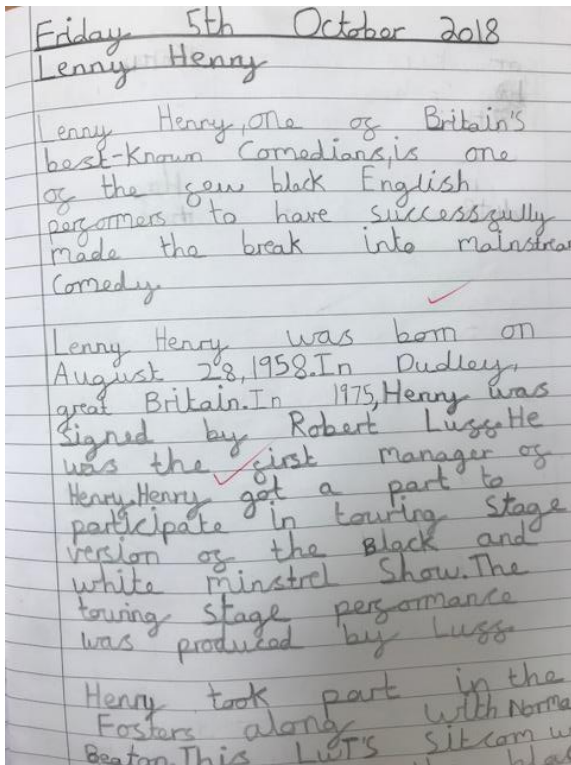 Friday 5th October 2018
Lenny Henry
Lenny Henry, one of Britain's
best-Known Comedians, is one
of the few black English
performers to have successfully
made the break into mainstrea
Comedy.
Lenny Henry was born on
August 28, 1958. In Dudley,
great Britain. In 1975, Henry was
signed by Robert Luff. He
was the first manager of
Henry. Henry got a part to
participate in touring Stage
version of the Black and
white minstrel Show. The
touring stage performance
was produced by Luff.
Henry took part in the
Fosters along with Norma
Beaton. This LWT's sitcom w